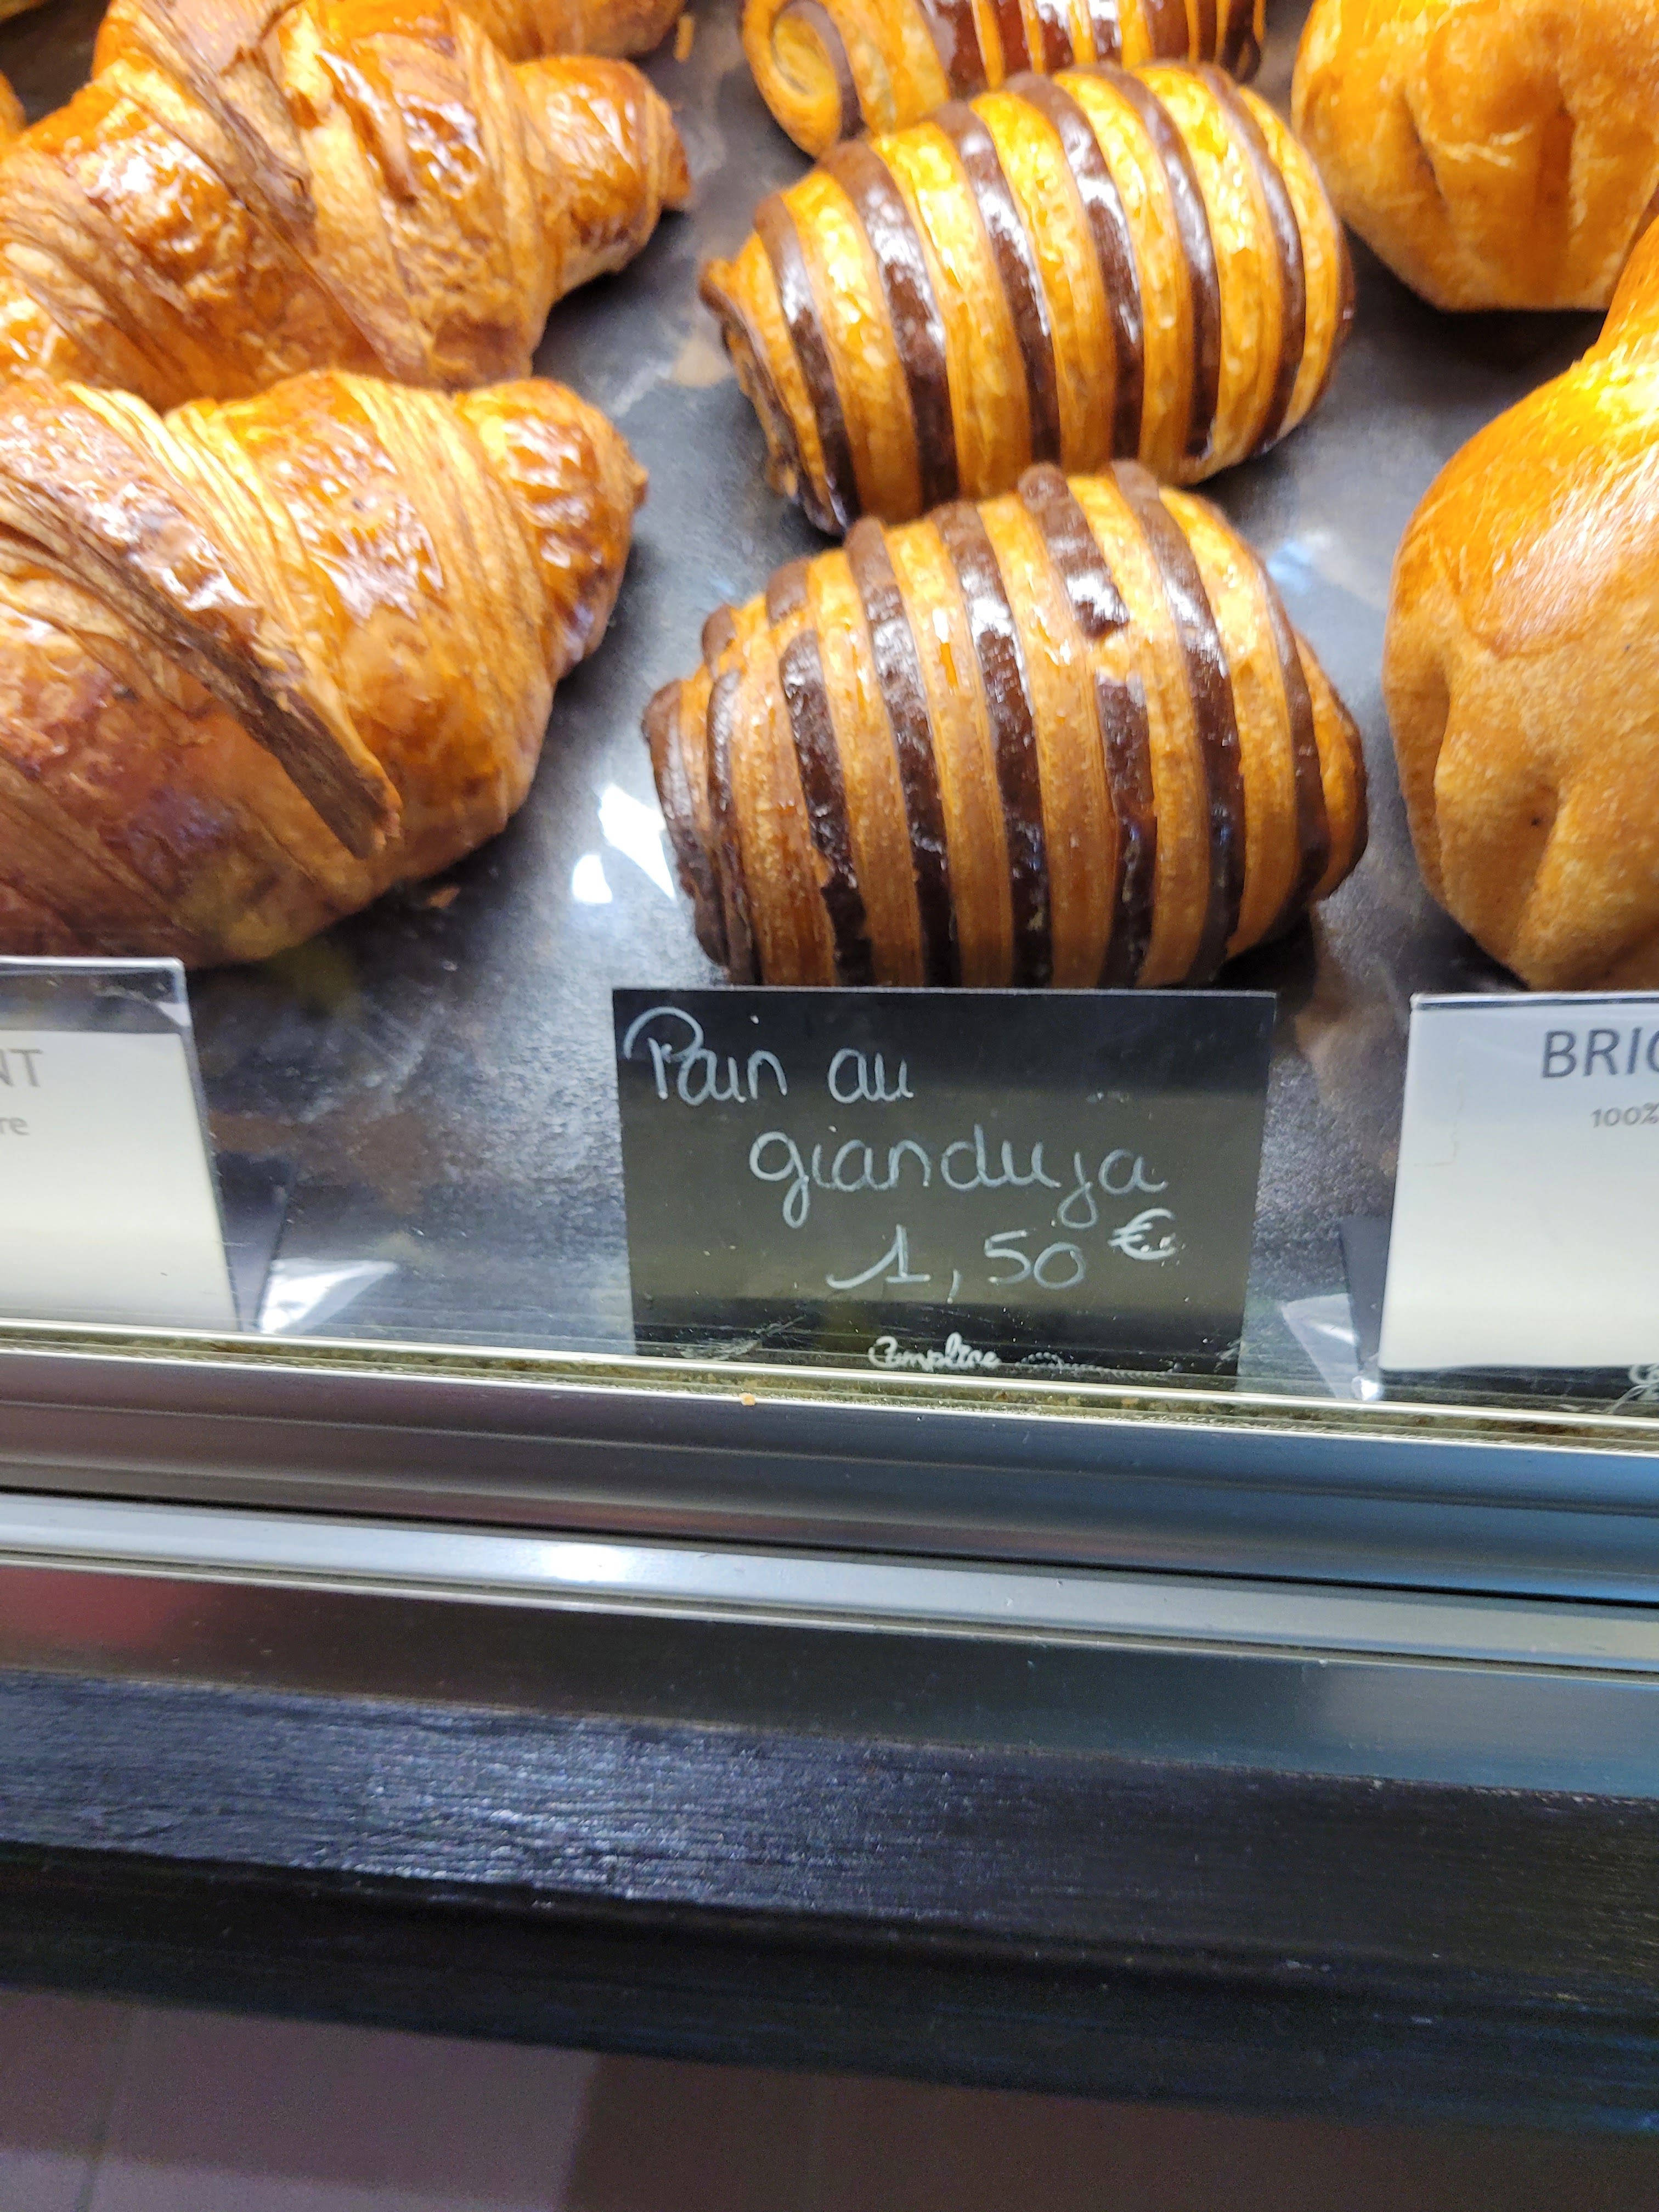 NT
re
Pain au
gianduja
1,50 €
BRIO
100%